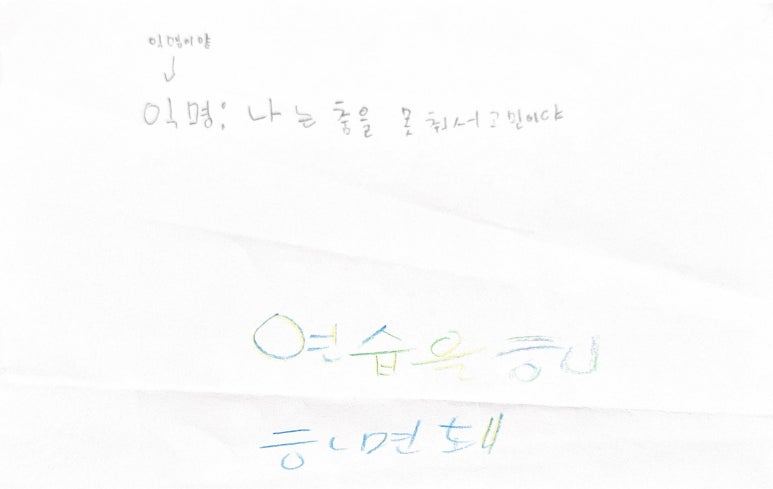 익명이얌
↓
익명: 나는 춤을 못 춰서 고민이야
연습을 해
하면 돼